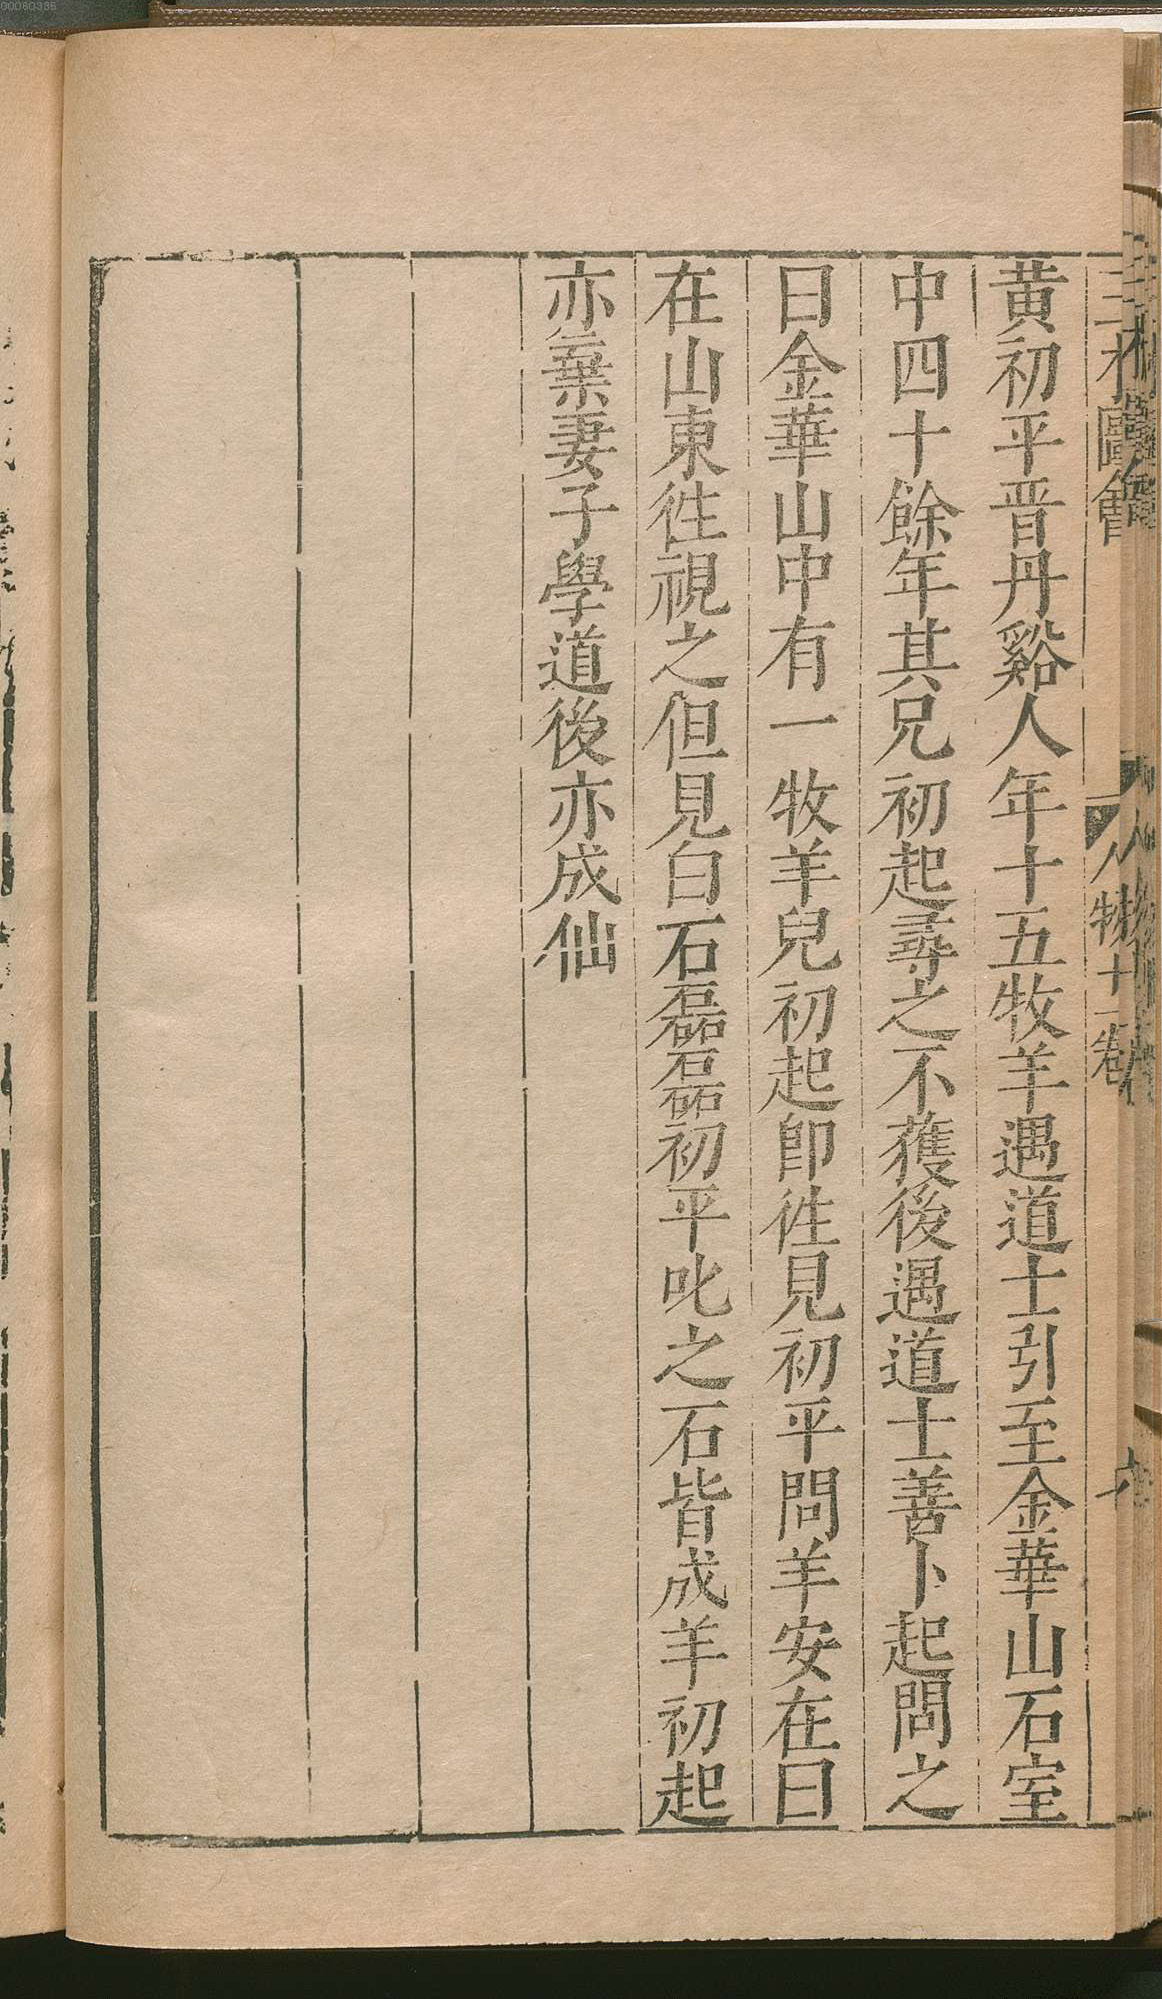 三才圖會 人物十一卷 六
黄初平晋丹谿人年十五牧羊遇道士引至金華山石室
中四十餘年其兄初起尋之不獲後遇道士善卜起問之
曰金華山中有一牧羊兒初起即徃見初平問羊安在曰
在山東徃視之但見白石磊磊初平叱之石皆成羊初起
亦棄妻子學道後亦成仙
00060386